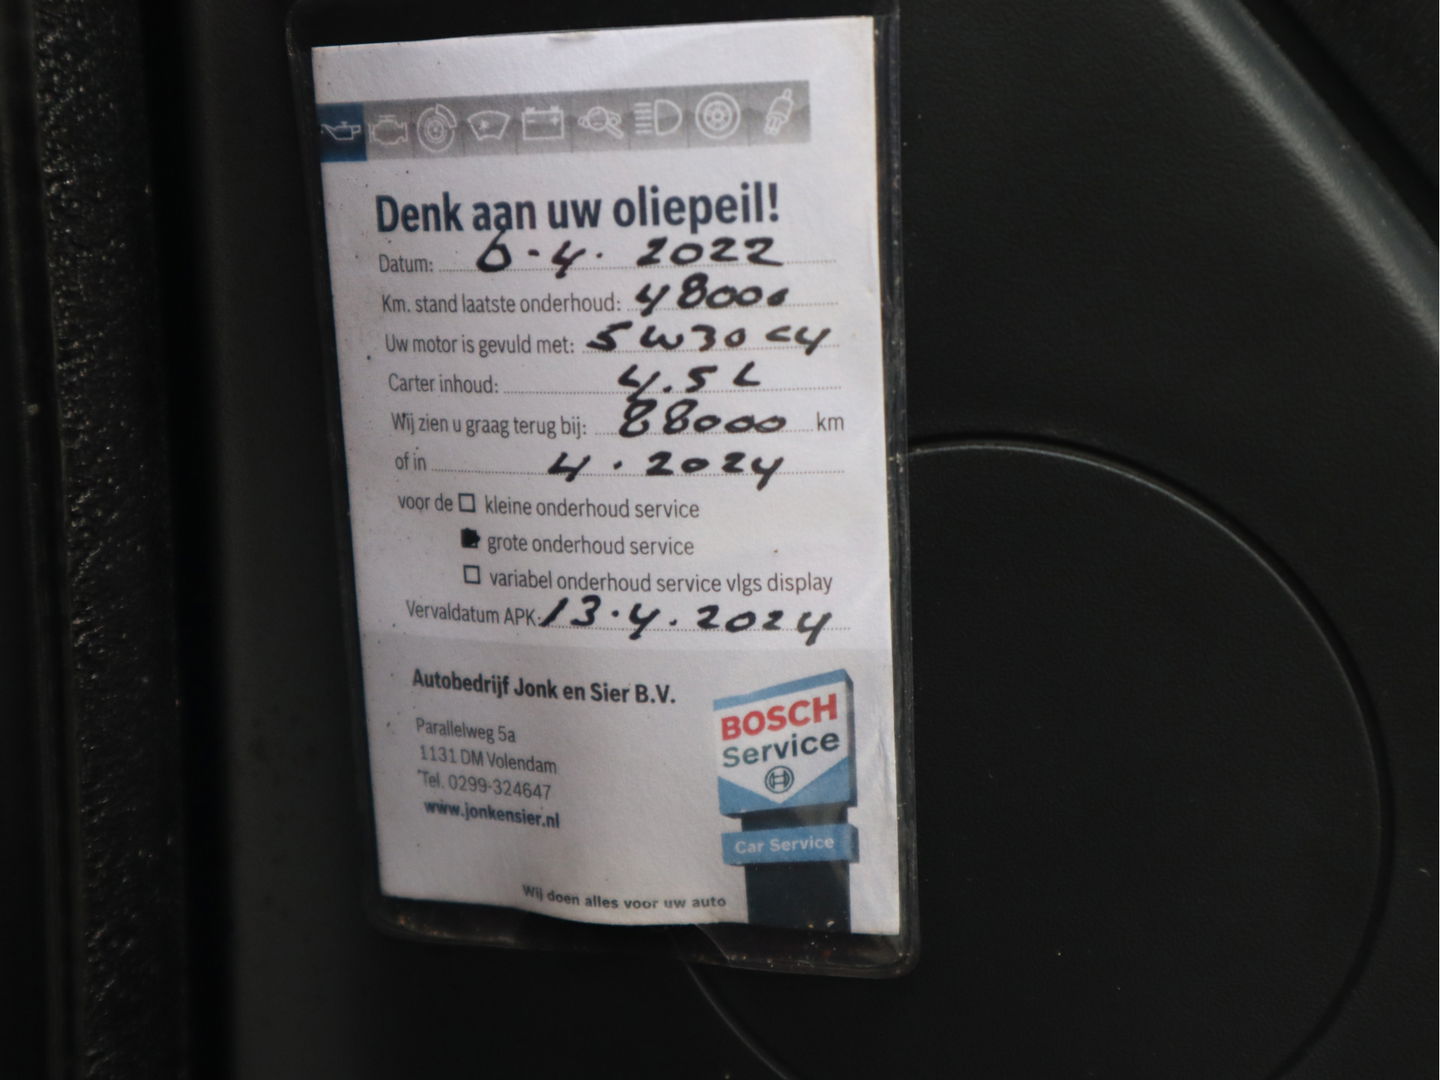 Denk aan uw oliepeil!
Datum: 6-4. 2022
Km. stand laatste onderhoud: 48000
Uw motor is gevuld met: 5W30 C4
Carter inhoud: 4.5 L
Wij zien u graag terug bij: 88000 km
of in 4.2024
voor de kleine onderhoud service
grote onderhoud service
variabel onderhoud service vlgs display
Vervaldatum APK: 13.4.2024
Autobedrijf Jonk en Sier B.V.
Parallelweg 5a
1131 DM Volendam
Tel. 0299-324647
www.jonkensier.nl
BOSCH
Service
Car Service
Wij doen alles voor uw auto